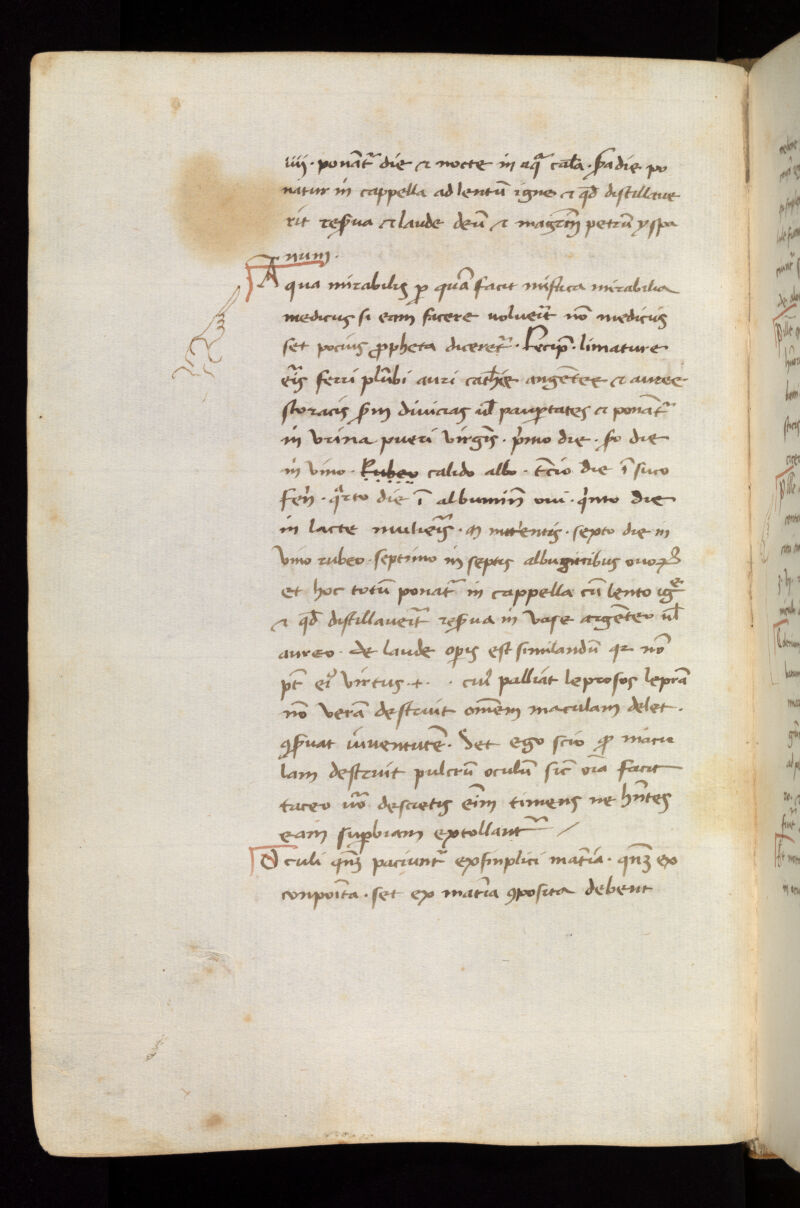 iiii. ponat̃ die ⁊ nocte in aq̃ cal̃a. s̃a die po
natur in cappella ad lentũ igne ⁊ qđ distillaue
rit res̃ua ⁊ laude deũ ⁊ magr̃m petrũ yspa
num.
Aqua mirabilis ꝑ quã facit mistica mirabilia
medicus si eam facere voluerit̃ nõ medicus
set pocius ꝓpheta diceret̃. Recip̃. limature
er̃is ferri plũbi auri cathĩe argẽtee ⁊ auree
storacis s̃m diuicias ul̃ paupertates ⁊ ponãt̃
in vrina pueri virgĩs. p̃mo die. s̃o die
in vino. Rubeo calido albo. t̃cio die ĩ suco
feñ. q̃rto die ĩ albumiñ oui. q̃nto die
in lacte mulier̃is. sexto die in
vino rubeo. septimo in septis albuginibus ouoꝝ
et hoc totũ ponat̃ in cappella cũ lento igẽ
⁊ qđ distillauerit̃ res̃ua in vase argẽteo ul̃
aureo. de laude op̃is est similandũ qr nõ
pt̃ ei⁹ virtus. +. . palliat leprosos leprã
nõ verã destruit om̃em maculam delet.
ꝯs̃uat iuuentutẽ. Set ego scio ꝙ macu
lam destruit pulcrũ oculũ sic̃ oĩa facit
taceo ũo descretis eĩm timens ne hñtes
eam suꝑbiam extollant̃ /
Oculi qñꝫ paciunt̃ ex simplici mat̃ia. qñꝫ ex
conpoĩta. set ex mat̃ia ꝯposita debent